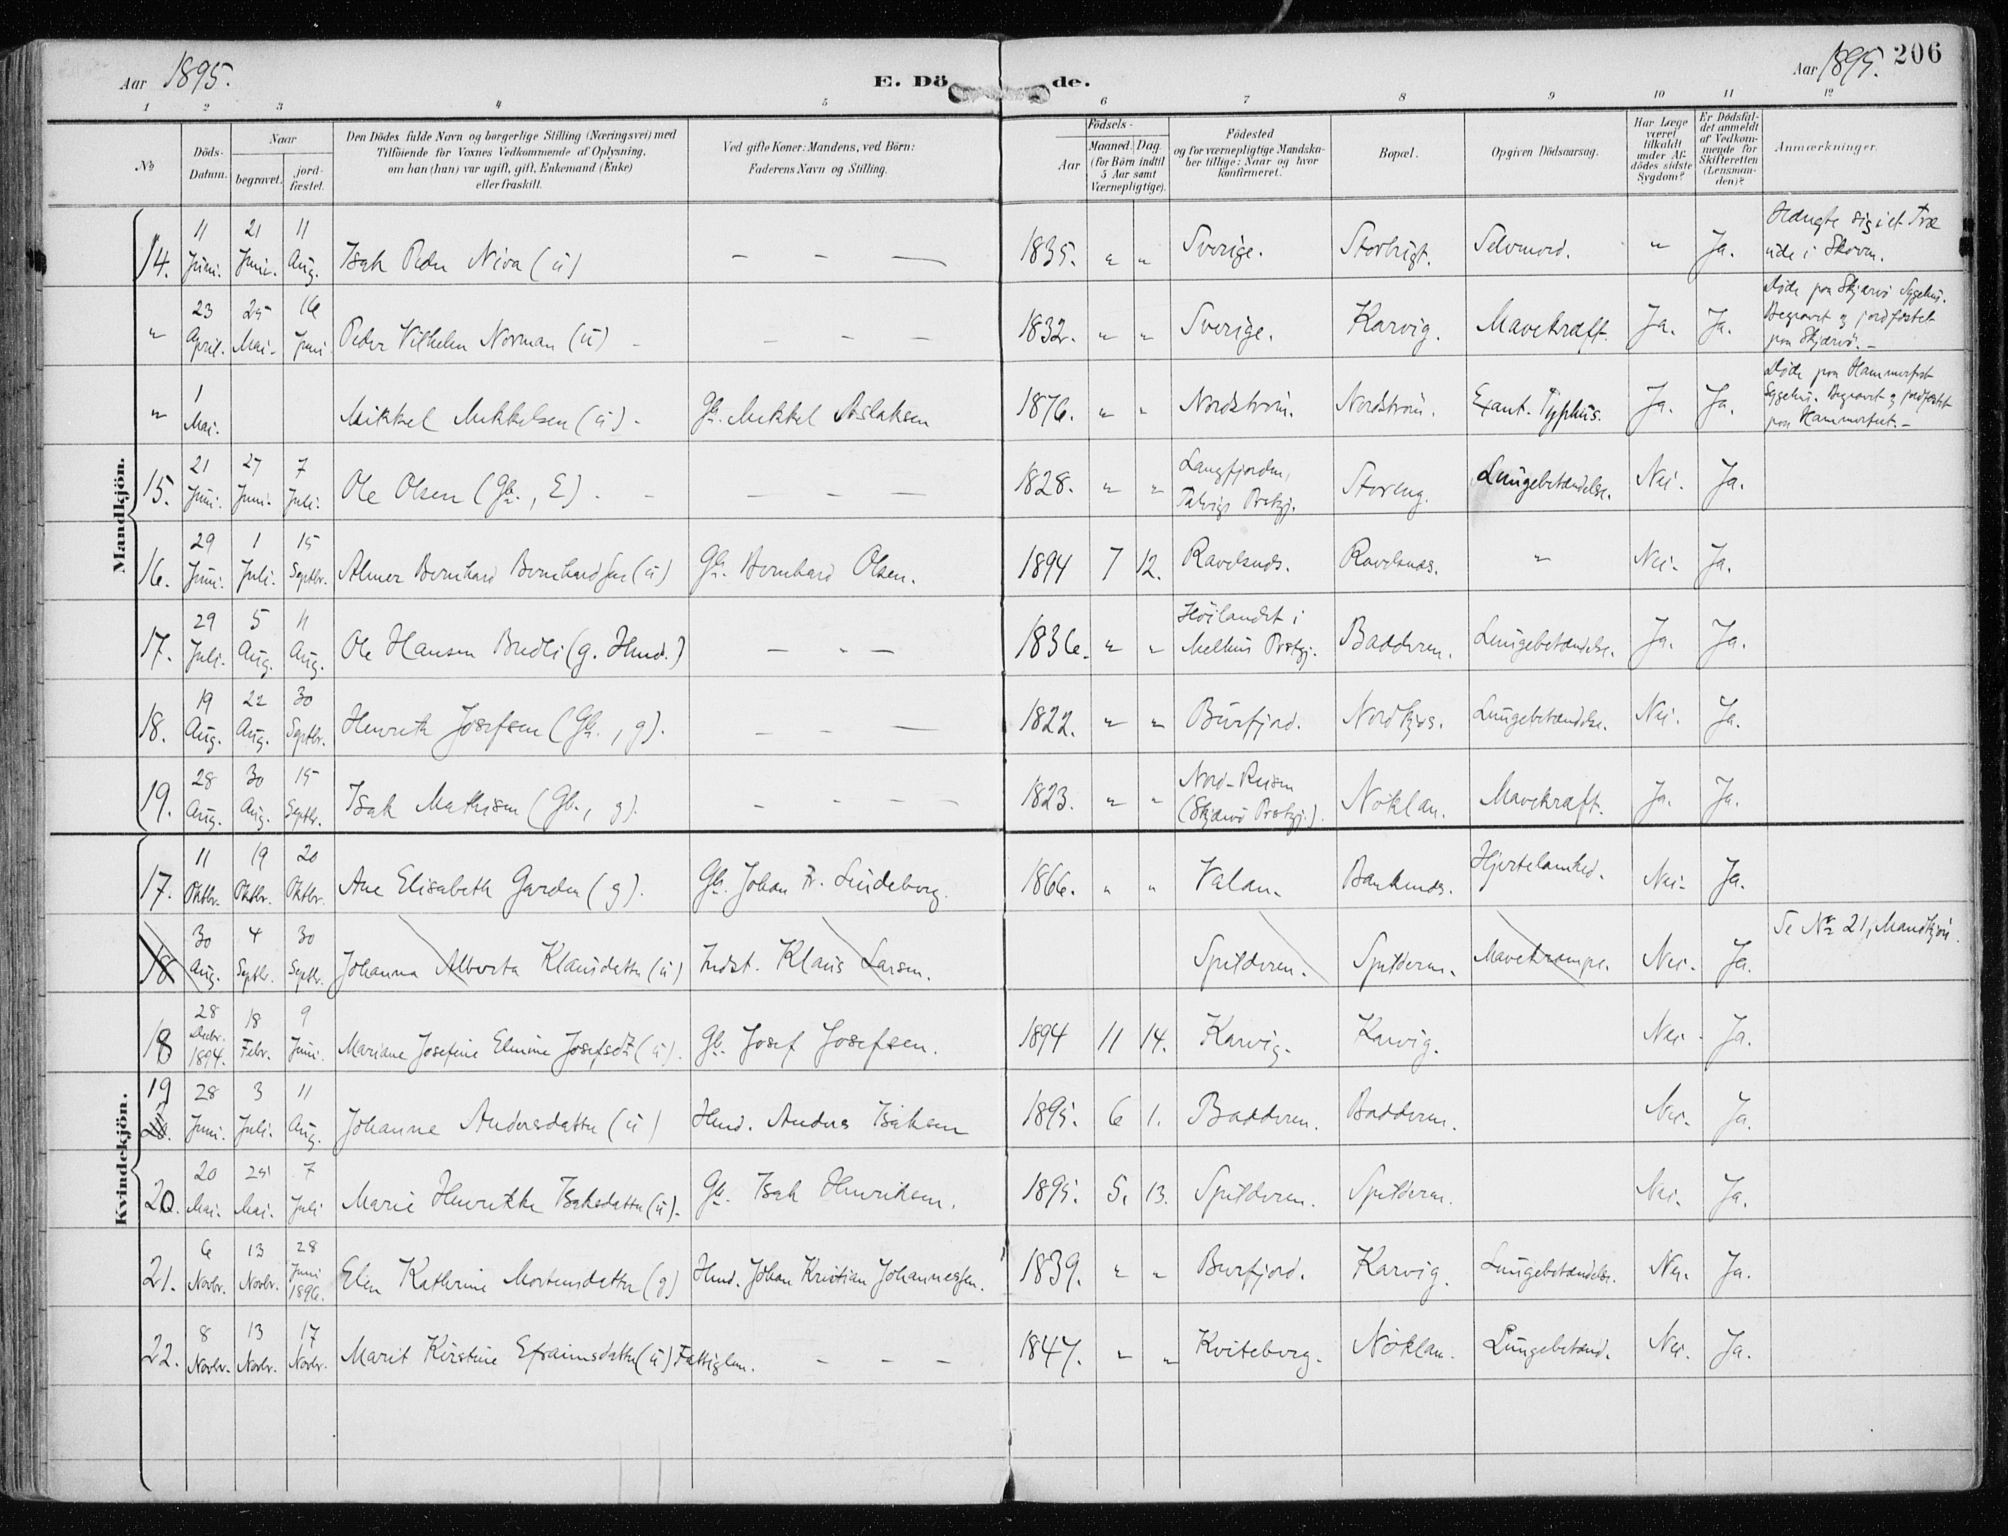 Aar 1895.
E. Döde.
Aar 1895. 206
1 2 3 4 5 6 7 8 9 10 11 12
No
Döds-Datum.
Naar
begravet.
jord-fæstet.
Den Dödes fulde Navn og borgerlige Stilling (Næringsvei) med
Tilföiende for Voxnes Vedkommende af Oplysning,
om han (hun) var ugift, gift, Enkemand (Enke)
eller fraskilt.
Ved gifte Koner: Mandens, ved Börn:
Faderens Navn og Stilling.
Födsels-
Aar
Maaned. Dag.
(for Børn indtil
5 Aar samt
Værnepligtige).
Födested
og for værnepligtige Mandska-
ber tillige: Naar og hvor
konfirmeret.
Bopæl.
Opgiven Dödsaarsag.
Har Læge
været
tilkaldt
under Af-
dödes sidste
Sygdom?
Er Dödsfal-
det anmeldt
af Vedkom-
mende for
Skifteretten
(Lensman-
den)?
Anmærkninger.
Mandkjön.
14. 11 Juni. 21 Juni. 11 Aug. Isak Peder Niva (ü) — — — 1835. " " Sverige. Storbugt. Selvmord. " Ja. Hængte sig i et Træ ude i Skoven.
" 23 April. 25 Mai. 16 Juni. Peder Vilhelm Norman (ü) — — — 1832. " " Sverige. Karvig. Mavekræft. Ja. Ja. Døde paa Skjærvö Sygehus. Begravet og jordfæstet paa Skjærvö.
" 1 Mai. Mikkel Mikkelsen (ü). Gb. Mikkel Aslaksen 1876. " " Nordström. Nordström. Exant. Typhus. Ja. Ja. Døde paa Hammerfest Sygehus. Begravet og jordfæstet paa Hammerfest.
15. 21 Juni. 27 Juni. 7 Juli. Ole Olsen (Gb., E). — — — 1828. " " Langfjorden, Talvigs Prstgj. Storeng. Lungebetændelse. Nei. Ja.
16. 29 Juni. 1 Juli. 15 Septbr. Almer Bernhard Bernhardsen (ü) Gb. Bernhard Olsen. 1894 7 12. Ravelsnæs. Ravelsnæs. " Nei. Ja.
17. 29 Juli. 5 Aug. 11 Aug. Ole Hansen Bredli (g. Hmd.) — — — 1836. " " Höilandet i Melhus Prstgj. Badderen. Lungebetændelse. Ja. Ja.
18. 19 Aug. 22 Aug. 30 Septbr. Henrik Josefsen (Gb., g). — — — 1822. " " Burfjord. Nordkjos. Lungebetændelse. Nei. Ja.
19. 28 Aug. 30 Aug. 15 Septbr. Isak Mathisen (Gb., g). — — — 1823. " " Nord-Reisen (Skjærvö Prstgj.). Nöklan. Mavekræft. Ja. Ja.
Kvindekjön.
17. 11 Oktbr. 19 Oktbr. 20 Oktbr. Ane Elisabeth Garden (g). Gb. Johan Fr. Lindeborg. 1866. " " Valan. Hjertelamhed. Nei. Ja.
18 30 Aug. 4 Septbr. 30 Septbr. Johanna Alberta Klausdatter (ü) Indst. Klaus Larsen. Spilderen. Spilderen. Mavekrampe. Nei. Ja. Se Nr 21, Mandkjön.
18 28 Decbr. 1894. 18 Febr. 9 Juni. Mariane Josefine Elmine Josefsdtr (ü). Gb. Josef Josefsen. 1894 11 14. Karvig. Karvig. Nei. Ja.
19 28 Juni. 3 Juli. 11 Aug. Johanne Andersdatter (ü) Hmd. Anders Isaksen 1895. 6 1. Badderen. Badderen. Nei. Ja.
20. 20 Mai. 25 Mai. 7 Juli Marie Henrikke Isaksdatter (ü). Gb. Isak Henriksen. 1895. 5. 13. Spilderen. Spilderen. Nei. Ja.
21. 6 Novbr. 13 Novbr. 28 Juni 1896. Elen Kathrine Mortensdatter (g) Hmd. Johan Kristian Johannessen. 1839. " " Burfjord. Karvig. Lungebetændelse. Nei. Ja.
22. 8 Novbr. 13 Novbr. 17 Novbr. Marit Kirstine Efraimsdatter (ü) Fattiglem. — — — 1847. " " Kviteberg. Nöklan. Lungebetænd. Nei. Ja.